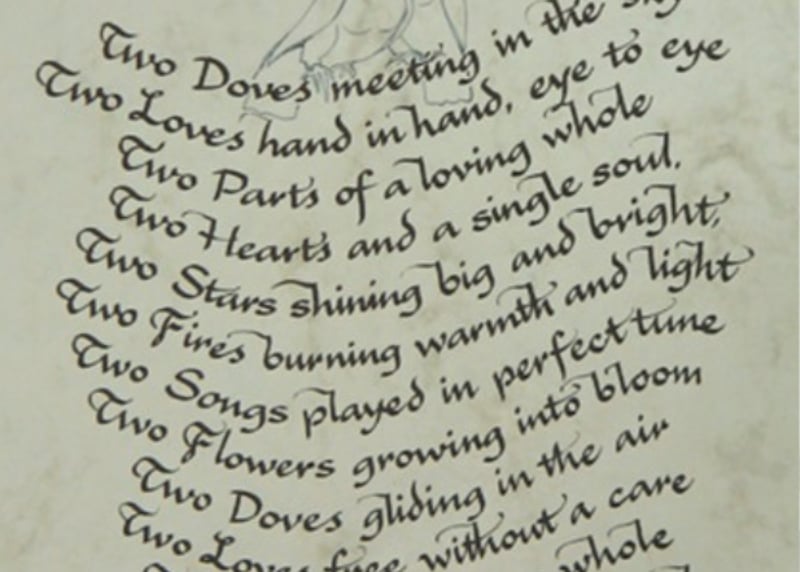 Two Doves meeting in the sky
Two Loves hand in hand, eye to eye
Two Parts of a loving whole
Two Hearts and a single soul.
Two Stars shining big and bright,
Two Fires burning warmth and light
Two Songs played in perfect tune
Two Flowers growing into bloom
Two Doves gliding in the air
Two Loves free without a care
whole